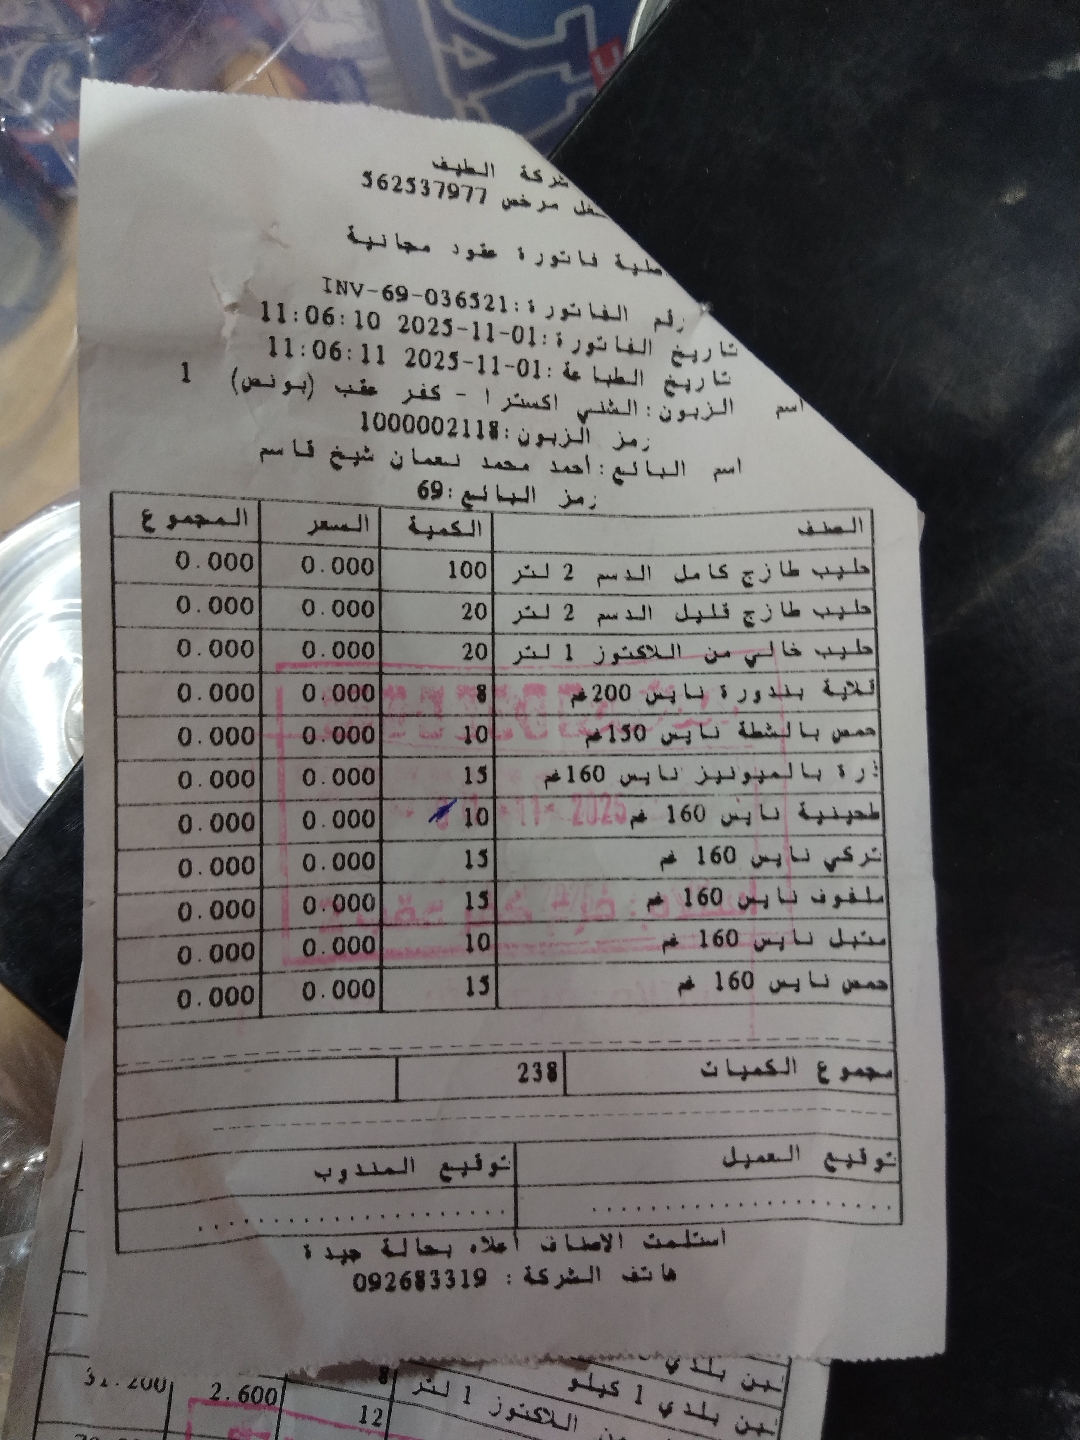 شركة الطيف
مشغل مرخص 562537977
طلبية فاتورة عقود مجانية
رقم الفاتورة:INV-69-036521
تاريخ الفاتورة:01-11-2025 11:06:10
تاريخ الطباعة:01-11-2025 11:06:11
اسم الزبون:الشني اكسترا - كفر عقب (بونص) 1
رمز الزبون:1000002118
اسم البائع:أحمد محمد نعمان شيخ قاسم
رمز البائع:69
الصنف الكمية السعر المجموع
حليب طازج كامل الدسم 2 لتر 100 0.000 0.000
حليب طازج قليل الدسم 2 لتر 20 0.000 0.000
حليب خالي من اللاكتوز 1 لتر 20 0.000 0.000
قلاية بندورة نايس 200غم 8 0.000 0.000
حمص بالشطة نايس 150غم 10 0.000 0.000
ذرة بالميونيز نايس 160غم 15 0.000 0.000
طحينية نايس 160 غم 10 0.000 0.000
تركي نايس 160 غم 15 0.000 0.000
ملفوف نايس 160 غم 15 0.000 0.000
متبل نايس 160 غم 10 0.000 0.000
حمص نايس 160 غم 15 0.000 0.000
مجموع الكميات 238
توقيع العميل توقيع المندوب
استلمت الاصناف أعلاه بحالة جيدة
هاتف الشركة : 092683319
بلدي
لبن بلدي 1 كيلو 8 2.600 31.200
من اللاكتوز 1 لتر 12